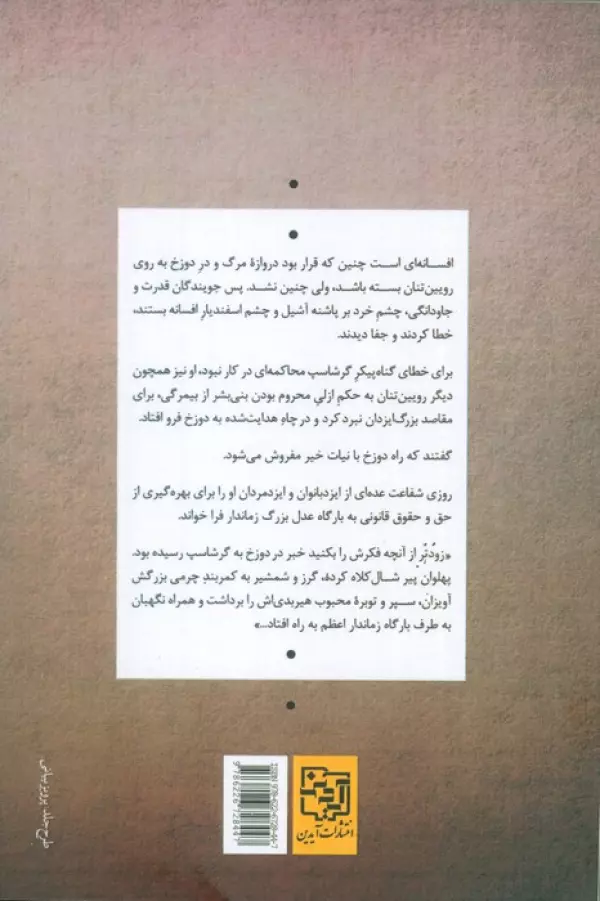 افسانه‌ای است چنین که قرار بود دروازهٔ مرگ و درِ دوزخ به روی
رویین‌تنان بسته باشد، ولی چنین نشد. پس جویندگان قدرت و
جاودانگی، چشمِ خرد بر پاشنه آشیل و چشم اسفندیارِ افسانه بستند،
خطا کردند و جفا دیدند.
برای خطای گناه‌پیکرِ گرشاسپ محاکمه‌ای در کار نبود، او نیز همچون
دیگر رویین‌تنان به حکمِ ازلیِ محروم بودن بنی‌بشر از بیمرگی، برای
مقاصد بزرگ‌ایزدان نبرد کرد و در چاهِ هدایت‌شده به دوزخ فرو افتاد.
گفتند که راه دوزخ با نیات خیر مفروش می‌شود.
روزی شفاعت عده‌ای از ایزدبانوان و ایزدمردان او را برای بهره‌گیری از
حق و حقوق قانونی به بارگاه عدل بزرگ زماندار فرا خواند.
«زودتر از آنچه فکرش را بکنید خبر در دوزخ به گرشاسپ رسیده بود.
پهلوان پیر شال‌کلاه کرده، گرز و شمشیر به کمربندِ چرمی بزرگش
آویزان، سپر و توبرهٔ محبوب هیربدی‌اش را برداشت و همراه نگهبان
به طرف بارگاه زماندار اعظم به راه افتاد...»
طرح جلد: پرویز بیانی
ISBN 978-622-6728-44-7
9786226728447
آیدین
انتشارات آیدین